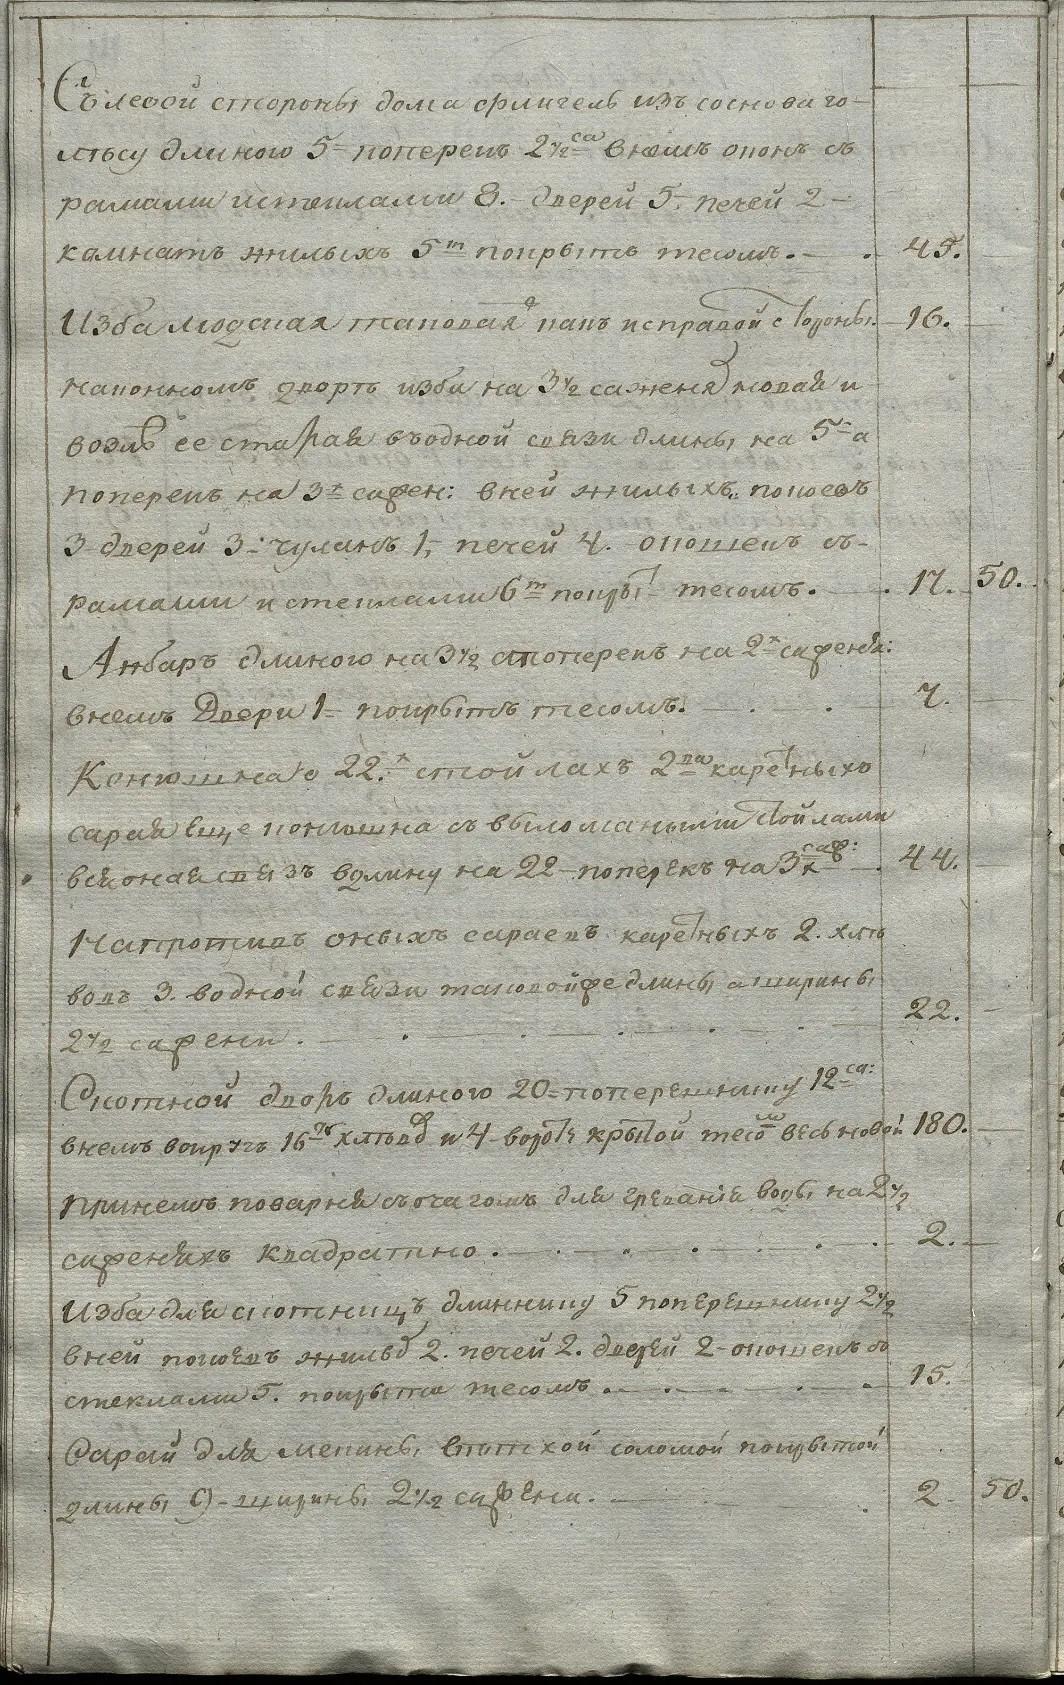 Съ левой стороны дома флигель изъ сосноваго
лѣсу длиною 5 поперегъ 2 1/2 са внемъ оконъ съ
рамами истеклами 8. дверей 5. печей 2
комнатъ жилыхъ 5т покрытъ тесомъ. 45.
Изба людская таковая какъ исправой стороны. 16.
наконномъ дворѣ изба на 3 1/2 саженя новая и
возлѣ ее старая въодной связи длины на 5 а
поперегъ на 3х сажен: вней жилыхъ покоевъ
3 дверей 3. чуланъ 1, печей 4. окошекъ съ
рамами истеклами 6т покры тесомъ. 17. 50.
Анбаръ длиною на 3 1/2 апоперегъ на 2х саженя:
внемъ Двери 1 покрытъ тесомъ. 7.
Конюшна о 22.х стойлахъ 2ва каретныхъ
сарая еще конюшна съ выломаными стойлами
вся оная связь вдлину на 22 поперекъ на 3х саж: 44.
Напротивъ оныхъ сараевъ каретныхъ 2. хлѣ
вовъ 3. водной связи таковойже длины аширины
2 1/2 сажени. 22.
Скотной дворъ длиною 20 поперешнику 12 са:
внемъ вокругъ 16ть хлѣвов и 4 вороты крытой тесом весь новой 180.
принемъ поварня съочагомъ для греванiя воды на 2 1/2
саженяхъ квадратно. 2.
Изба для скотницъ длиннику 5 поперешнику 2 1/2
вней покоевъ жилых 2. печей 2. дверей 2 окошекъ со
стеклами 5. покрыта тесомъ. 15.
Сарай для мекины вптихой соломой покрытой
длины 9 ширины 2 1/2 сажени. 2 50.